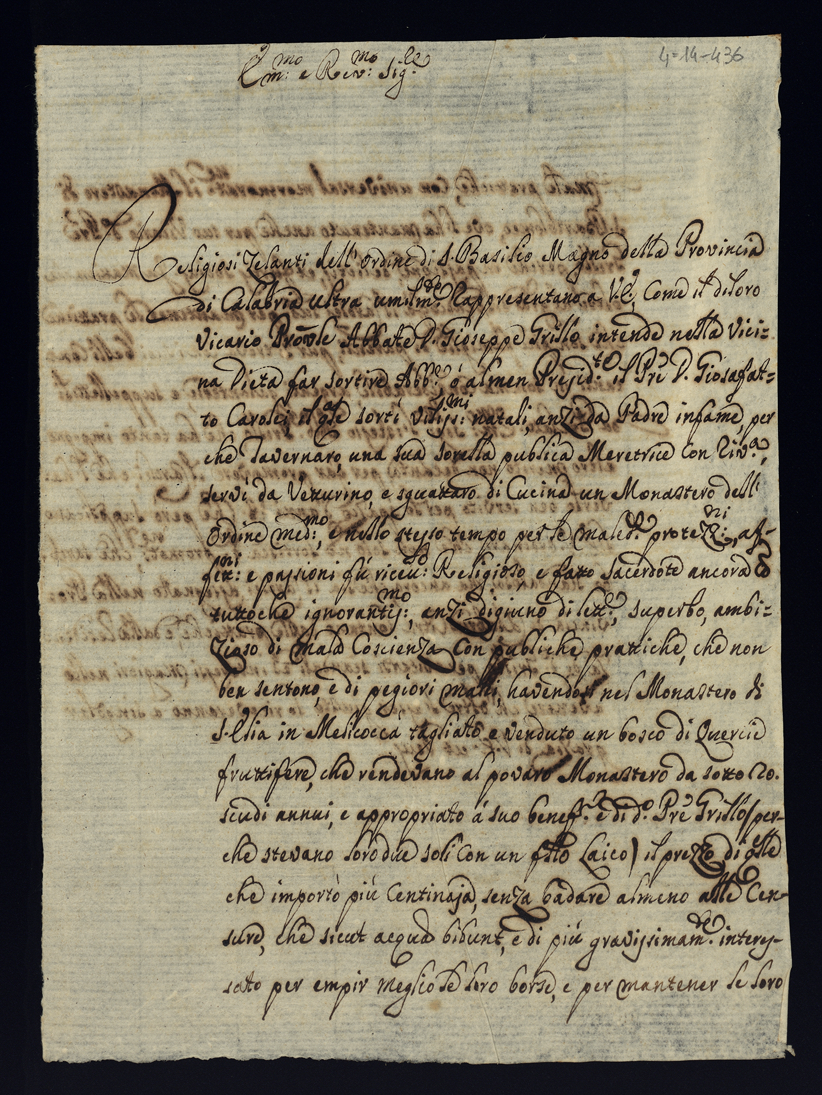 E.mo e Rev.mo Sig.re
4=14-436
Religiosi Zelanti dell'ordine di S. Basilio Magno della Provincia
di Calabria ultra umilm.te rappresentano a V.E., come il di loro
Vicario Prov.le Abbate D. Gioseppe Grillo intende nella vici-
na Dieta far sortire Abb.e ó almen Presid.te il Pre D. Giosafat-
to Carolei, il q.le sortì vilis.mi natali, anzi da Padre infame, per
che Tavernaro, una sua sorella publica Meretrice con
servì da Vetturino, e sguattaro di Cucina un Monastero dell'
ordine med.mo, e nello stesso tempo per le maled.e protez.ni, af-
fett.ni e passioni fú riceu.to Religioso e fatto sacerdote ancora
tuttoche ignorantis.mo, anzi digiuno di lett.e, superbo, ambi-
zioso di mala Coscienza con publiche prattiche, che non
ben sentono, e di pegiori mali, havendo nel Monastero di
S. Elia in Melicoccà tagliato e venduto un bosco di Quercie
fruttifere, che rendevano al povaro Monastero da sotto 20.
scudi annui, e appropriato á suo benef.o e di d.o Pre Grillo (per-
che stevano loro due soli con un f.tto Laico) il prezzo di q.lle
che importò più Centinaja, senza badare almeno alle Cen-
sure, che sicut acqua bibunt, e di più gravissimam.te interes-
sato per empir meglio le loro borse, e per mantener le loro